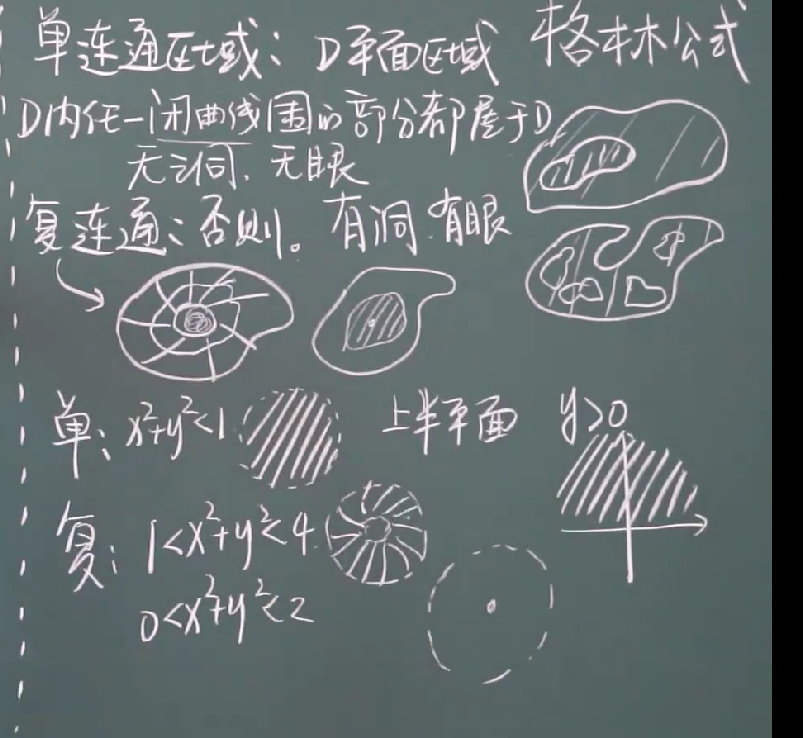 单连通区域：D平面区域 格林公式
D内任一闭曲线围的部分都属于D
无洞、无眼
复连通：否则。有洞 有眼
单：x²+y²<1 上半平面 y>0
复：1<x²+y²<4
0<x²+y²<2